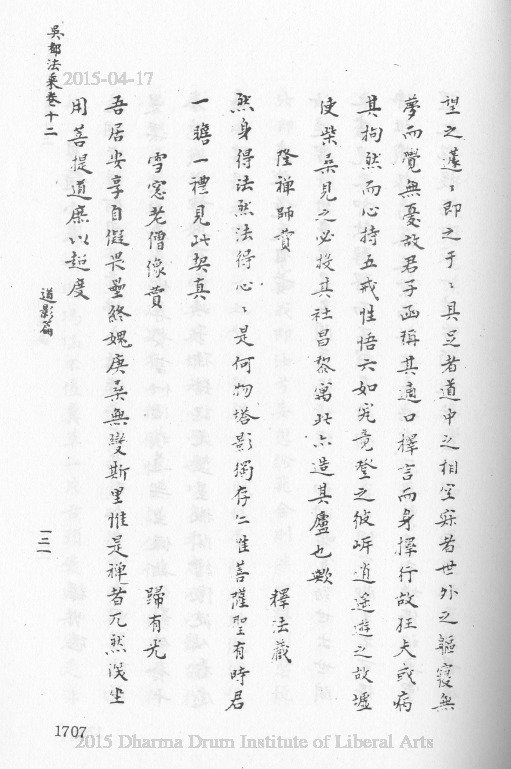 望之蘧〻即之于〻具足者道中之相空寐者世外之軀寢無
夢而覺無憂故君子函稱其適口擇言而身擇行故狂夫或病
其拘然而心持五戒性悟六如究竟登之彼岍逍遥遊之故墟
使柴桑見之必投其社昌黎寓此亦造其廬也歟
隆禅師賛
釋法藏
然身得法然法得心〻是何物塔影獨存仁隹菩薩聖有時君
一瞻一禮見此契真
雪窓老僧像賛
歸有光
吾居安享自假畏壘終媿庚桑無變斯里惟是禅者兀然淺坐
用菩提道庶以超度
吳都法乘卷十二
道影篇
一三一
1707
2015-04-17
2015 Dharma Drum Institute of Liberal Arts